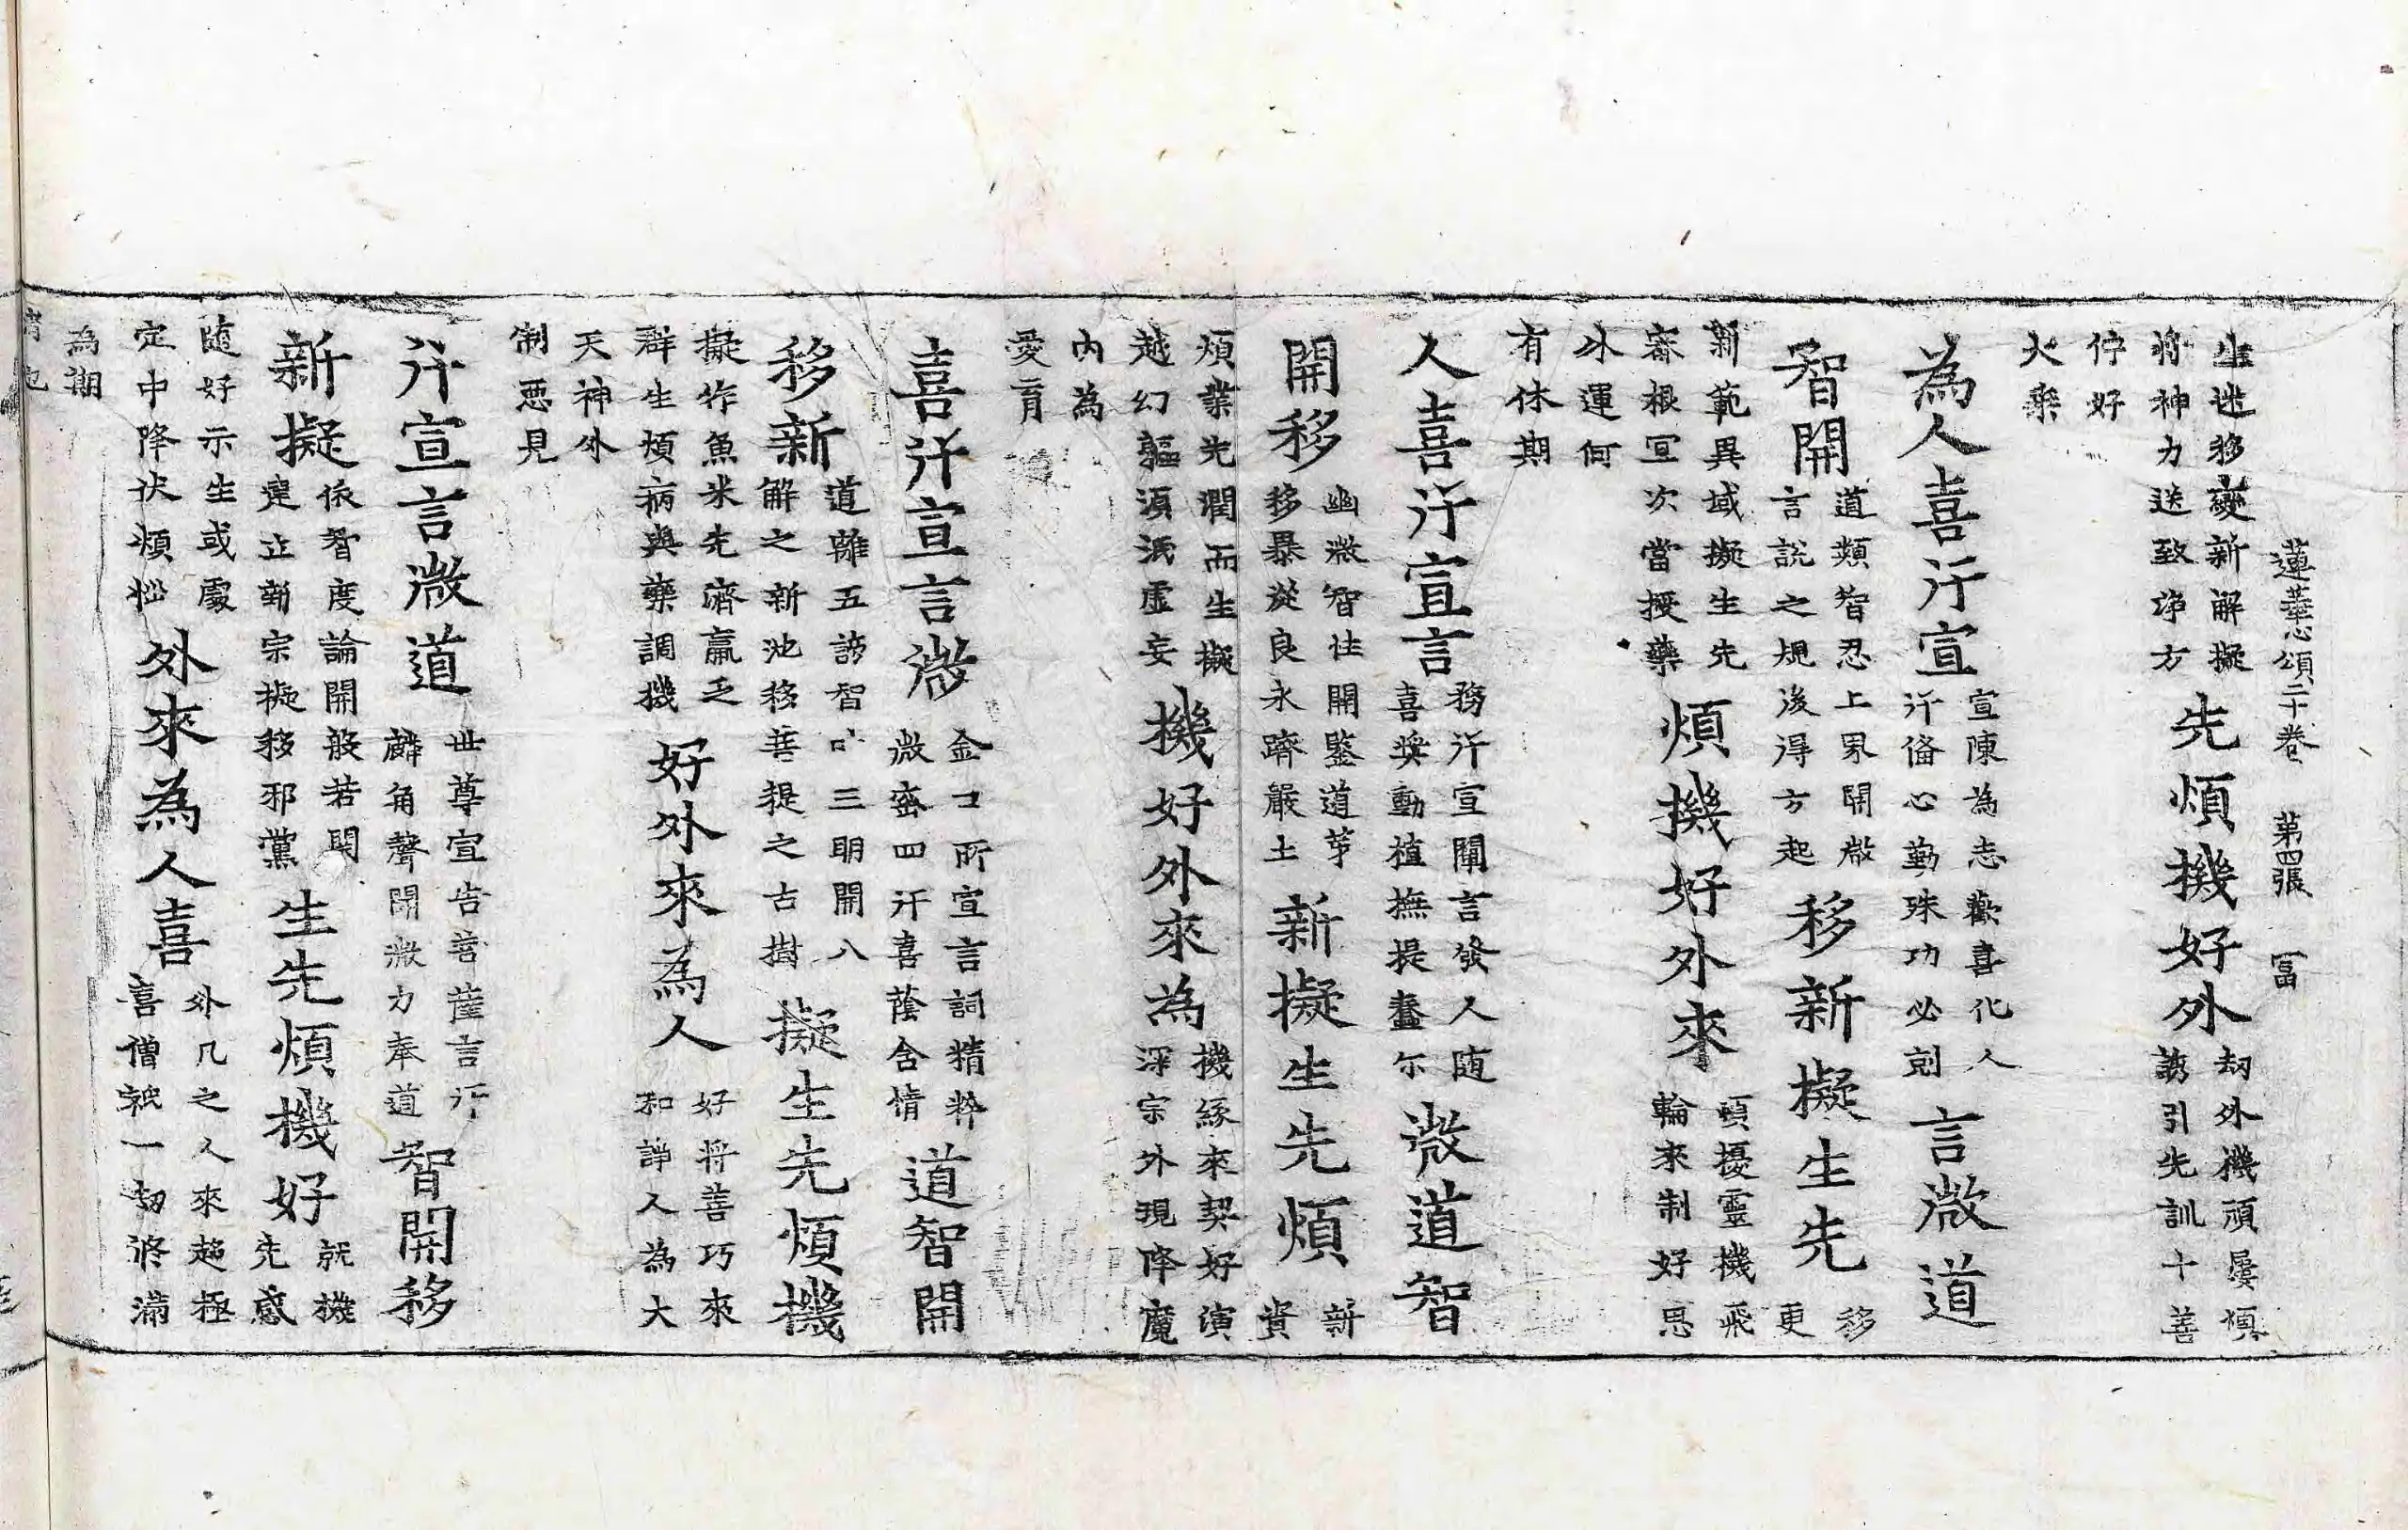 蓮華心頌二十卷 第四張 冨
生迷移變新解擬
將神力送致淨方
先煩機好外
劫外機頑屢煩
誘引先訓十善
佇好
大乘
為人喜行宣
宣陳為志歡喜化人
行俻心勤殊功必剋
言微道
智開
道類智忍上界開啟
言說之規後得方起
移新擬生先
移
更
新範異域擬生先
審根宣次當授藥
煩機好外來
煩擾靈機飛
輪來制好思
外運何
有休期
人喜行宣言
務行宣闡言發人随
喜奬動植撫提蠢尓
微道智
開移
幽微智往開鑒道芽
移暴從良永躋嚴土
新擬生先煩
新
賁
煩業先潤而生擬
越幻軀須泯虛妄
機好外來為
機緣來契好演
深宗外現降魔
內為
愛育
喜行宣言微
金口所宣言詞精粹
微密四行喜蔭含情
道智開
移新
道離五謗智 三明開八
解之新池移菩提之古樹
擬生先煩機
擬作魚米先濟羸乏
群生煩病與藥調機
好外來為人
好將善巧來
和諍人為大
天神外
制惡見
行宣言微道
世尊宣告菩薩言行
麟角聲聞微力奉道
智開移
新擬
依智度論開般若関
建立新宗擬移邪黨
生先煩機好
就機
先惑
随好示生或處
定中降伏煩惱
外來為人喜
外凡之人來趍極
喜僧祇一劫終滿
為期
也